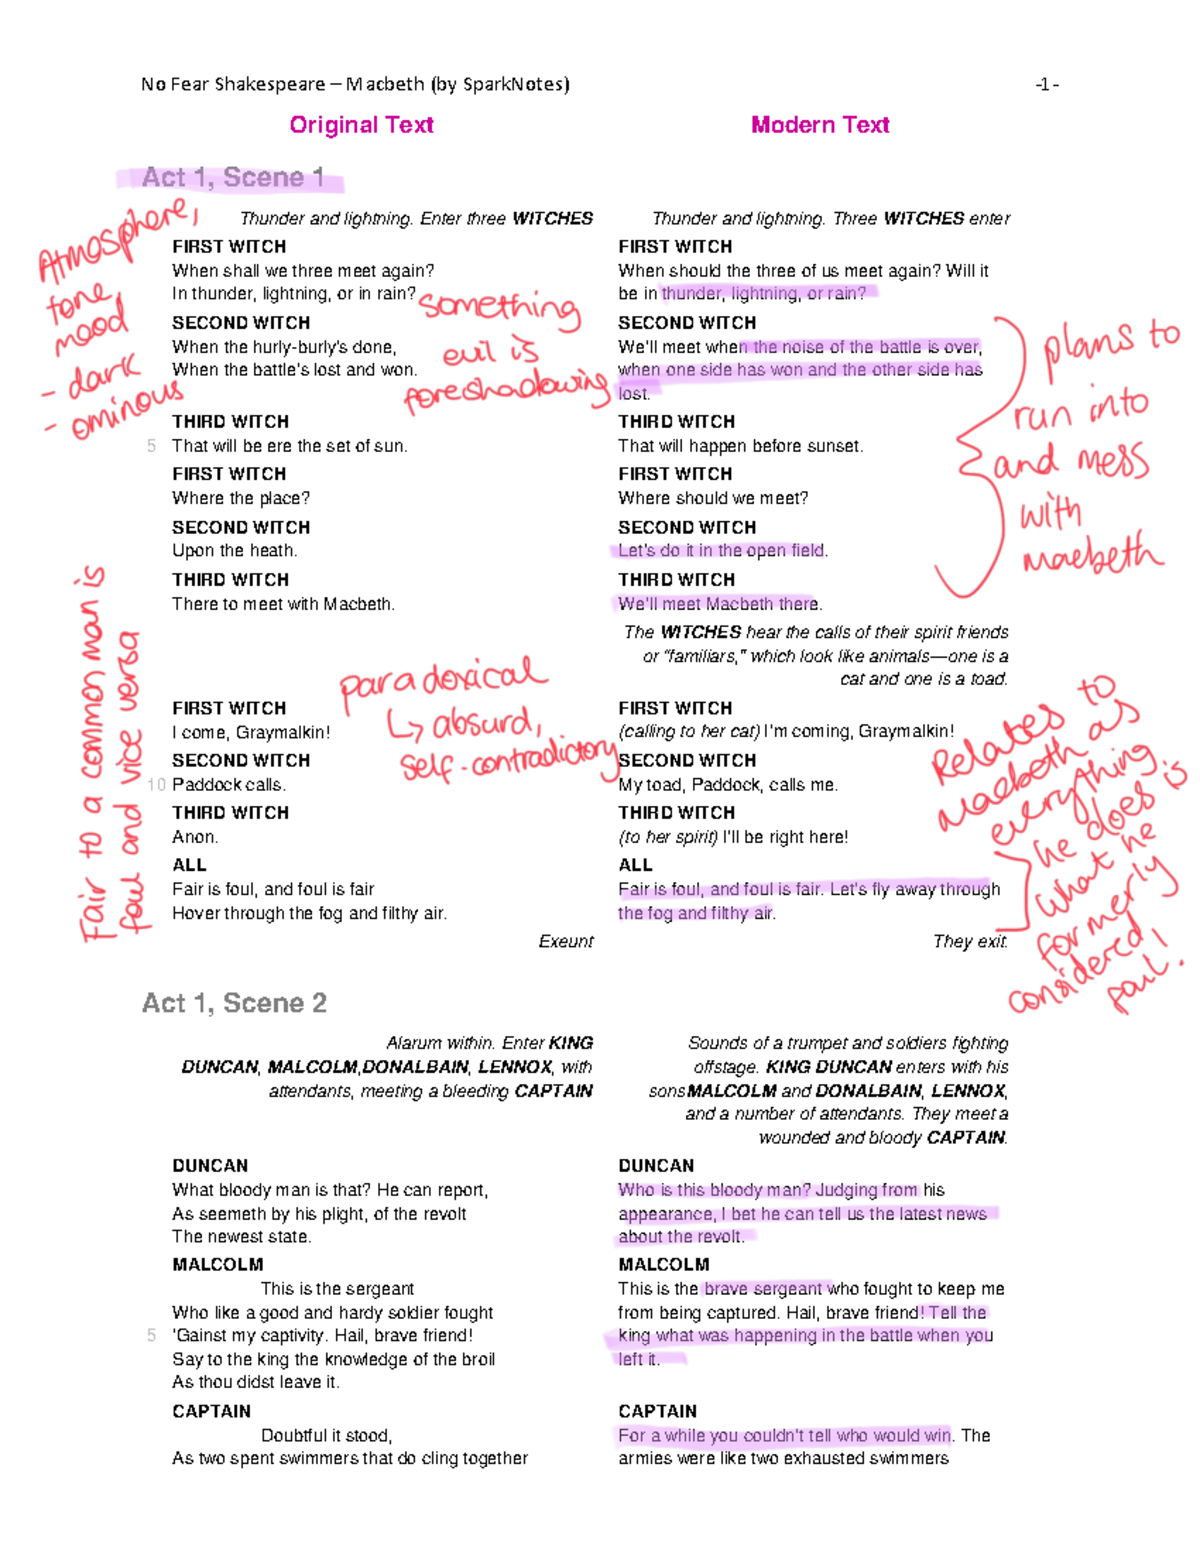 No Fear Shakespeare – Macbeth (by SparkNotes) -1-
Original Text
Modern Text
Act 1, Scene 1
Thunder and lightning. Enter three WITCHES
FIRST WITCH
When shall we three meet again?
In thunder, lightning, or in rain?
SECOND WITCH
When the hurly-burly's done,
When the battle's lost and won.
THIRD WITCH
5 That will be ere the set of sun.
FIRST WITCH
Where the place?
SECOND WITCH
Upon the heath.
THIRD WITCH
There to meet with Macbeth.
FIRST WITCH
I come, Graymalkin!
SECOND WITCH
10 Paddock calls.
THIRD WITCH
Anon.
ALL
Fair is foul, and foul is fair
Hover through the fog and filthy air.
Exeunt
Thunder and lightning. Three WITCHES enter
FIRST WITCH
When should the three of us meet again? Will it
be in thunder, lightning, or rain?
SECOND WITCH
We'll meet when the noise of the battle is over,
when one side has won and the other side has
lost.
THIRD WITCH
That will happen before sunset.
FIRST WITCH
Where should we meet?
SECOND WITCH
Let's do it in the open field.
THIRD WITCH
We'll meet Macbeth there.
The WITCHES hear the calls of their spirit friends
or "familiars," which look like animals—one is a
cat and one is a toad.
FIRST WITCH
(calling to her cat) I'm coming, Graymalkin!
SECOND WITCH
My toad, Paddock, calls me.
THIRD WITCH
(to her spirit) I'll be right here!
ALL
Fair is foul, and foul is fair. Let's fly away through
the fog and filthy air.
They exit.
Atmosphere,
tone,
mood
- dark
- ominous
something
evil is
foreshadowing
plans to
run into
and mess
with
macbeth
Fair to a common man is
foul and vice versa
paradoxical
↳ absurd,
self-contradictory
Relates to
Macbeth as
everything
he does is
what he
formerly
considered,
foul.
Act 1, Scene 2
Alarum within. Enter KING
DUNCAN, MALCOLM,DONALBAIN, LENNOX, with
attendants, meeting a bleeding CAPTAIN
DUNCAN
What bloody man is that? He can report,
As seemeth by his plight, of the revolt
The newest state.
MALCOLM
This is the sergeant
Who like a good and hardy soldier fought
5 'Gainst my captivity. Hail, brave friend!
Say to the king the knowledge of the broil
As thou didst leave it.
CAPTAIN
Doubtful it stood,
As two spent swimmers that do cling together
Sounds of a trumpet and soldiers fighting
offstage. KING DUNCAN enters with his
sonsMALCOLM and DONALBAIN, LENNOX,
and a number of attendants. They meet a
wounded and bloody CAPTAIN.
DUNCAN
Who is this bloody man? Judging from his
appearance, I bet he can tell us the latest news
about the revolt.
MALCOLM
This is the brave sergeant who fought to keep me
from being captured. Hail, brave friend! Tell the
king what was happening in the battle when you
left it.
CAPTAIN
For a while you couldn't tell who would win. The
armies were like two exhausted swimmers